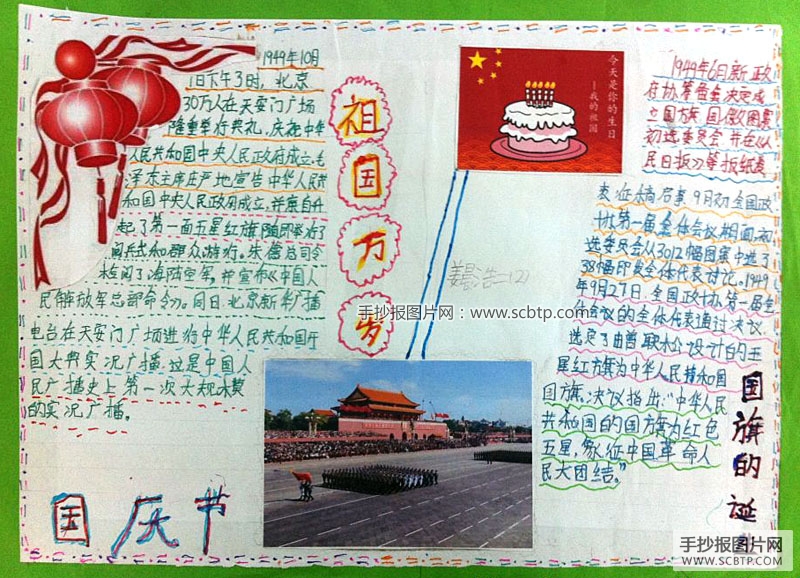 1949年10月
1日下午3时，北京
30万人在天安门广场
隆重举行典礼，庆祝中华
人民共和国中央人民政府成立，毛
泽东主席庄严地宣告中华人民共
和国中央人民政府成立，并亲自升
起了第一面五星红旗，随即举行了
阅兵式和群众游行。朱德总司令
检阅了海陆空军，并宣布《中国人
民解放军总部命令》。同日，北京新华广播
电台在天安门广场进行中华人民共和国开
国大典实况广播，这是中国人
民广播史上第一次大规模
的实况广播。
国庆节
祖
国
万
岁
今天是你的生日
—我的祖国
姜昌浩二(2)
手抄报图片网：www.scbtp.com
1949年6月新政
治协筹备会决定成
立国旗、国徽图案
初选委员会，并在《人
民日报》等报纸发
表征稿启事，9月初全国政
协第一届全体会议期间，初
选委员会从3012幅图案中选了
38幅印发全体代表讨论。1949
年9月27日，全国政协第一届全
体会议的全体代表通过决议
选定了由曾联松设计的五
星红旗为中华人民共和国
国旗。决议指出："中华人民
共和国的国旗为红色
五星，象征中国革命人
民大团结。"
国旗的诞
手抄报图片网
WWW.SCBTP.COM